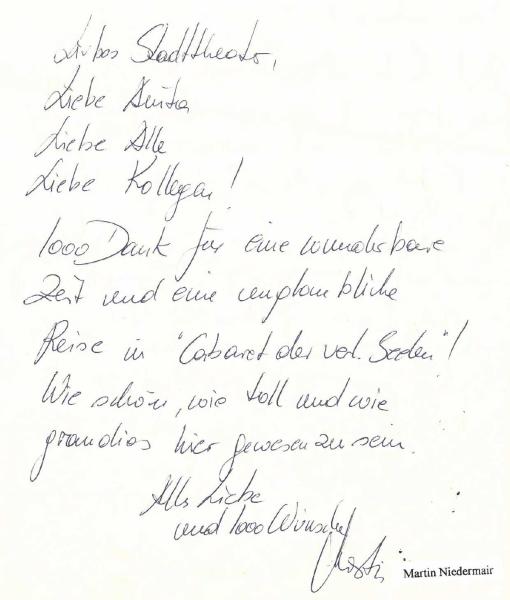 Liebes Stadttheater,
Liebe Anita
Liebe Alle
Liebe Kollegen!
1000 Dank für eine wunderbare
Zeit und eine unglaubliche
Reise in "Cabaret der verl. Seelen"!
Wie schön, wie toll und wie
grandios hier gewesen zu sein.
Alles Liebe
und 1000 Wünsche
Martin
Martin Niedermair